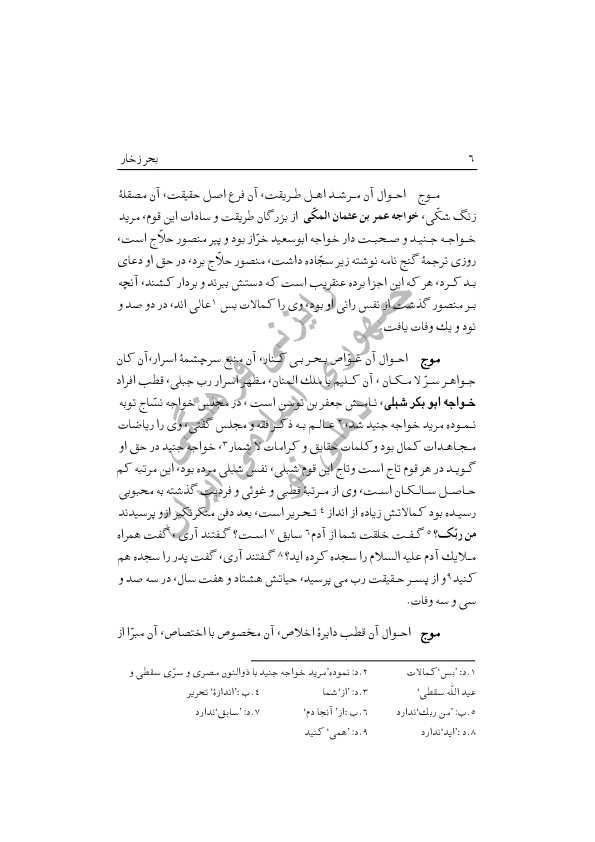 ٦
بحر زخار
مـوج احـوال آن مـرشـد اهـل طـريقت، آن فرع اصل حقيقت، آن مصقلهٔ
زنگ شكّى، خواجه عمر بن عثمان المكّى از بزرگان طريقت و سادات اين قوم، مريد
خـواجـه جـنيد و صـحبـت دار خواجه ابوسعيد خرّاز بود و پير منصور حلاّج است،
روزى ترجمهٔ گنج نامه نوشته زير سجّاده داشت، منصور حلاّج برد، در حق او دعاى
بـد كـرد، هر كه اين اجزا برده عنقريب است كه دستش ببرند و بردار كشند، آنچه
بـر منصور گذشت از نفس رانى او بود، وى را كمالات بس ١ عالى اند، در دو صد و
نود و يك وفات يافت.
موج احـوال آن غـوّاص بـحـر بـى كـنار، آن منبع سرچشمهٔ اسرار، آن كان
جـواهـر سـرّ لا مـكـان ، آن كـليم با ملك المنان، مظهر اسرار رب جبلى، قطب افراد
خـواجه ابو بكر شبلى، نـامـش جعفر بن يونس است ، در مجلس خواجه نسّاج توبه
نـمـوده مريد خواجه جنيد شد، ٢ عـالـم بـه ذكـر فقه و مجلس گفتى، وى را رياضات
مـجـاهـدات كمال بود و كلمات حقايق و كرامات لا شمار ٣، خواجه جنيد در حق او
گـويـد در هر قوم تاج است وتاج اين قوم شبلى، نفس شبلى مرده بود، اين مرتبه كم
حـاصـل سـالـكـان اسـت، وى از مـرتبهٔ قطبى و غوثى و فرديت گذشته به محبوبى
رسيـده بود كمالاتش زياده از انداز ٤ تـحـرير است، بعد دفن منكرنكير ازو پرسيدند
من ربّك؟ ٥ گـفـت خلقت شما از آدم ٦ سابق ٧ است؟ گـفتند آرى ، گفت همراه
مـلايك آدم عليه السلام را سجده كرده ايد؟ ٨ گـفتند آرى، گفت پدر را سجده هم
كنيد ٩ و از پسـر حـقيقت رب مى پرسيد، حياتش هشتاد و هفت سال، در سه صد و
سى و سه وفات.
موج احـوال آن قطب دايرهٔ اخلاص، آن مخصوص با اختصاص، آن مبرّا از
١.د: ’بس‘ كمالات ٢.د: نموده ’مريد خواجه جنيد با ذوالنون مصرى و سرّى سقطى و
عبد الله سقطى‘ ٣.د: ’از‘ شما ٤.ب :’اندازهٔ‘ تحرير
٥.ب: ’من ربك‘ ندارد ٦.ب :از’ آنجا دم‘ ٧.د: ’سابق‘ ندارد
٨.د :’ايد‘ ندارد ٩.د: ’همى‘ كنيد
رايزنى فرهنگى
جمهورى اسلامى ايران
دهلى نو